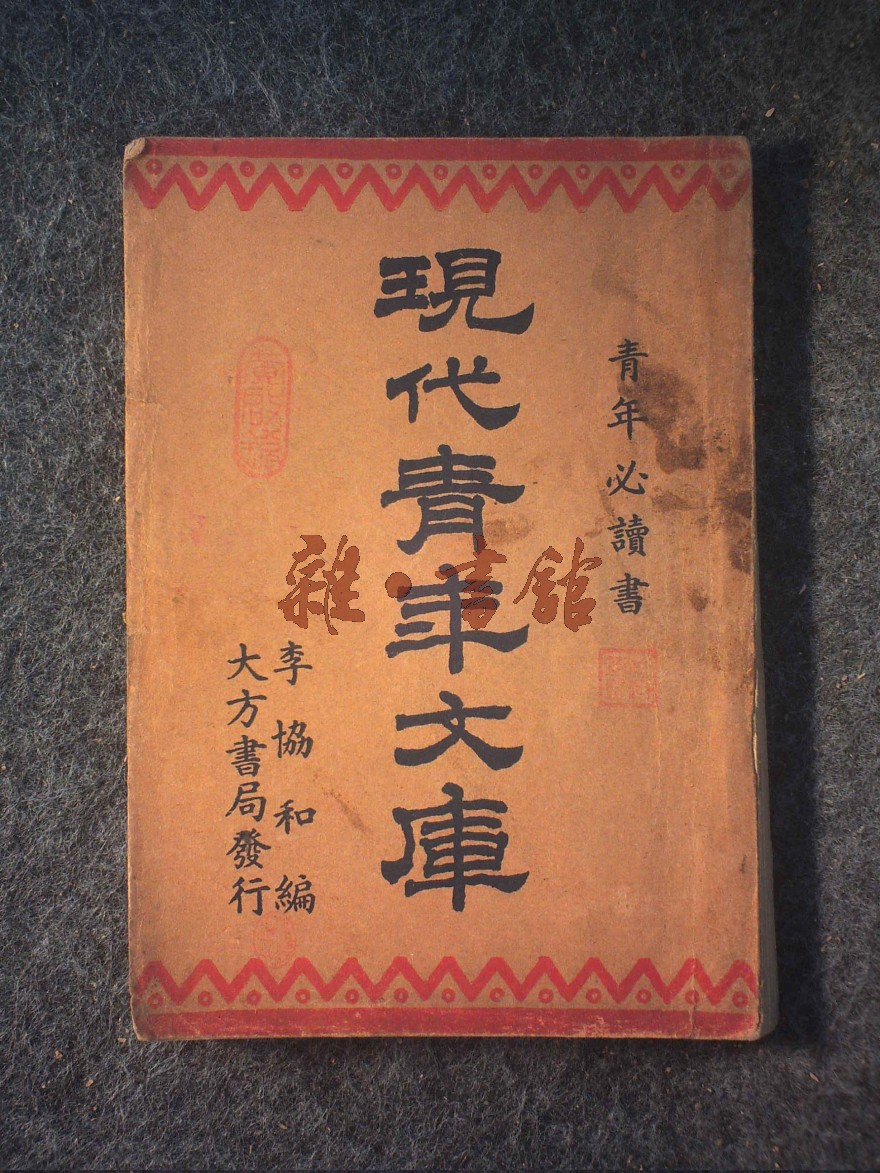 青年必讀書
現代青年文庫
李協和編
大方書局發行
雜·書館